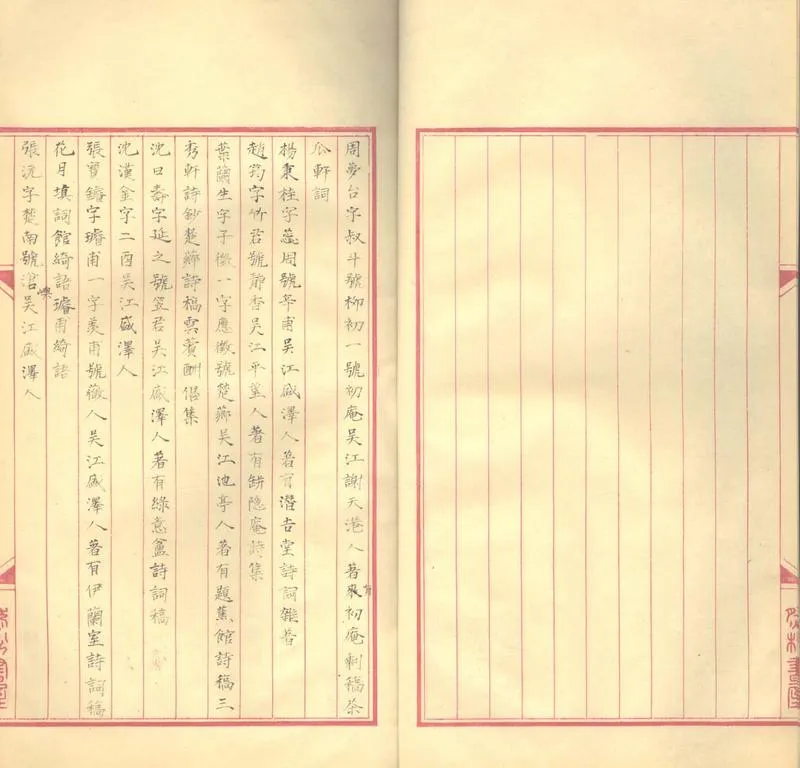 周夢台字叔斗號柳初一號初庵吳江謝天港人著有衰初庵剩稿茶
瓜軒詞
楊秉桂字蕊周號辛甫吳江盛澤人著有潛吉堂詩詞雜著
趙筠字竹君號靜香吳江平望人著有餅隱庵詩集
葉蘭生字子徵一字應徵號楚薌吳江池亭人著有題蕉館詩稿三
秀軒詩鈔楚薌詩稿雲薋酬倡集
沈曰壽字延之號笠君吳江盛澤人著有綠意盦詩詞稿
沈漢金字二酉吳江盛澤人
張寶鐘字璿甫一字羨甫號薇人吳江盛澤人著有伊蘭室詩詞稿
花月填詞館綺語璿甫綺語
張沅字楚南號滄嶼吳江盛澤人